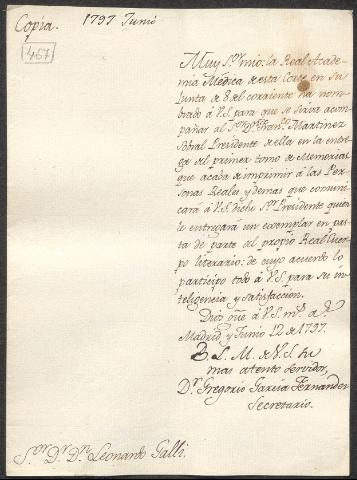 Copia. 1797 Junio
467
Muy S.or mio: la Real Academia
mia Médica de esta Corte en su
Junta de 8 del corriente ha nom-
brado á V.S. para que se sirva acom-
pañar al S.or D.n Fran.co Martinez
Sobral Presidente de ella en la entre-
ga del primer tomo de Memorias,
que acaba de imprimir á las Per-
sonas Reales y demas que comuni-
cará á V.S. dicho S.or Presidente quien
le entregará un exemplar en pas-
ta de parte del propio Real Cuer-
po literario: de cuyo acuerdo lo
participo todo á V.S. para su in-
teligencia y satisfaccion.
Dios gue á V.S. m.s a.s
Madrid y Junio 12 de 1797.
B. L. M. de V.S. su
mas atento servidor,
D.r Gregorio Garcia Fernandez
Secretario.
S.or D.r D.n Leonardo Galli.